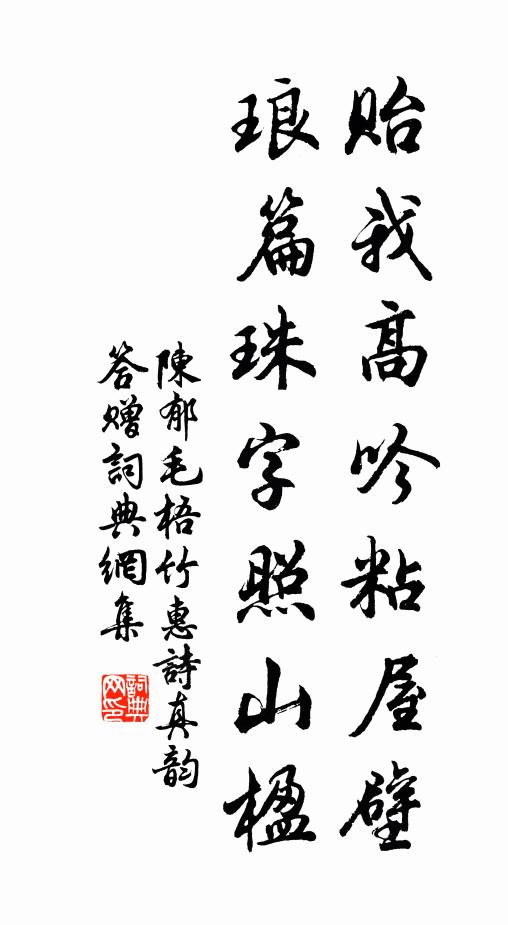 貽我高吟粘屋壁
琅篇珠字照山楹
陳郁毛梧竹惠詩真韵
答贈詞典網集
詞典网印